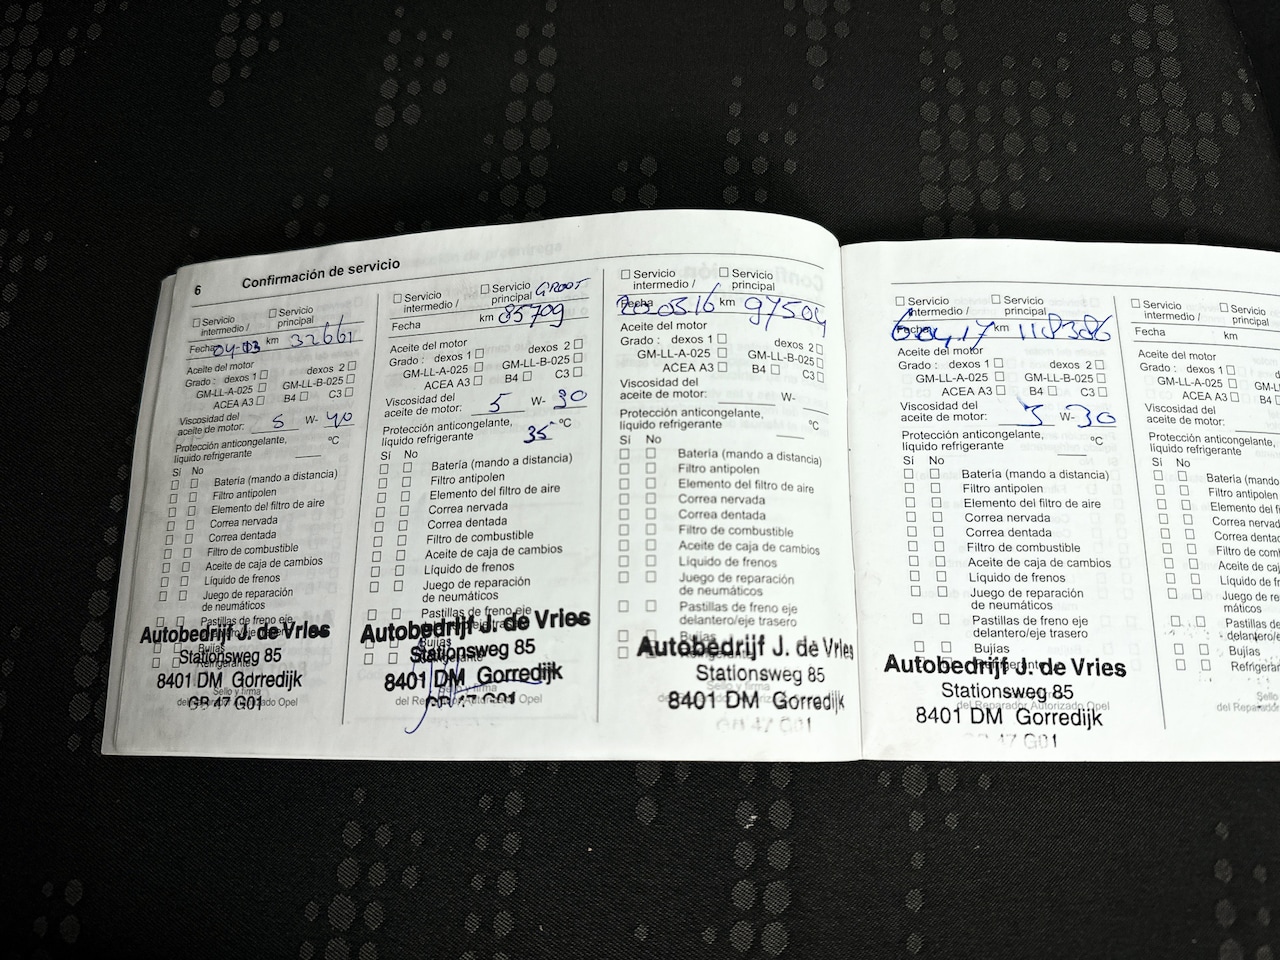 6 Confirmación de servicio
Servicio intermedio / Servicio principal
Fecha 04-13 km 32661
Aceite del motor
Grado : dexos 1 dexos 2
GM-LL-A-025 GM-LL-B-025
ACEA A3 B4 C3
Viscosidad del
aceite de motor: 5 W- 40
Protección anticongelante,
líquido refrigerante °C
Sí No
Batería (mando a distancia)
Filtro antipolen
Elemento del filtro de aire
Correa nervada
Correa dentada
Filtro de combustible
Aceite de caja de cambios
Líquido de frenos
Juego de reparación
de neumáticos
Pastillas de freno eje
delantero/eje trasero
Bujías
Autobedrijf J. de Vries
Stationsweg 85
8401 DM Gorredijk
Sello y firma
del Reparador Autorizado Opel
Servicio intermedio / Servicio principal GROOT
Fecha km 85709
Aceite del motor
Grado : dexos 1 dexos 2
GM-LL-A-025 GM-LL-B-025
ACEA A3 B4 C3
Viscosidad del
aceite de motor: 5 W- 30
Protección anticongelante,
líquido refrigerante 35 °C
Sí No
Batería (mando a distancia)
Filtro antipolen
Elemento del filtro de aire
Correa nervada
Correa dentada
Filtro de combustible
Aceite de caja de cambios
Líquido de frenos
Juego de reparación
de neumáticos
Pastillas de freno eje
delantero/eje trasero
Bujías
Autobedrijf J. de Vries
Stationsweg 85
8401 DM Gorredijk
Sello y firma
del Reparador Autorizado Opel
Servicio intermedio / Servicio principal
Fecha km 97504
Aceite del motor
Grado : dexos 1 dexos 2
GM-LL-A-025 GM-LL-B-025
ACEA A3 B4 C3
Viscosidad del
aceite de motor: W-
Protección anticongelante,
líquido refrigerante °C
Sí No
Batería (mando a distancia)
Filtro antipolen
Elemento del filtro de aire
Correa nervada
Correa dentada
Filtro de combustible
Aceite de caja de cambios
Líquido de frenos
Juego de reparación
de neumáticos
Pastillas de freno eje
delantero/eje trasero
Bujías
Autobedrijf J. de Vries
Stationsweg 85
8401 DM Gorredijk
Servicio intermedio / Servicio principal
Fecha km 118386
Aceite del motor
Grado : dexos 1 dexos 2
GM-LL-A-025 GM-LL-B-025
ACEA A3 B4 C3
Viscosidad del
aceite de motor: 5 W- 30
Protección anticongelante,
líquido refrigerante °C
Sí No
Batería (mando a distancia)
Filtro antipolen
Elemento del filtro de aire
Correa nervada
Correa dentada
Filtro de combustible
Aceite de caja de cambios
Líquido de frenos
Juego de reparación
de neumáticos
Pastillas de freno eje
delantero/eje trasero
Bujías
Autobedrijf J. de Vries
Stationsweg 85
del Reparador Autorizado Opel
8401 DM Gorredijk
Servicio intermedio / Servicio principal
Fecha km
Aceite del motor
Grado : dexos 1
GM-LL-A-025
ACEA A3
Viscosidad del
aceite de motor:
Protección anticongelante,
líquido refrigerante
Sí No
Batería (mando
Filtro antipolen
Elemento del
Correa nervada
Correa
Filtro de
Aceite de
Líquido de
Juego de
Pastillas de
Bujías
Sello